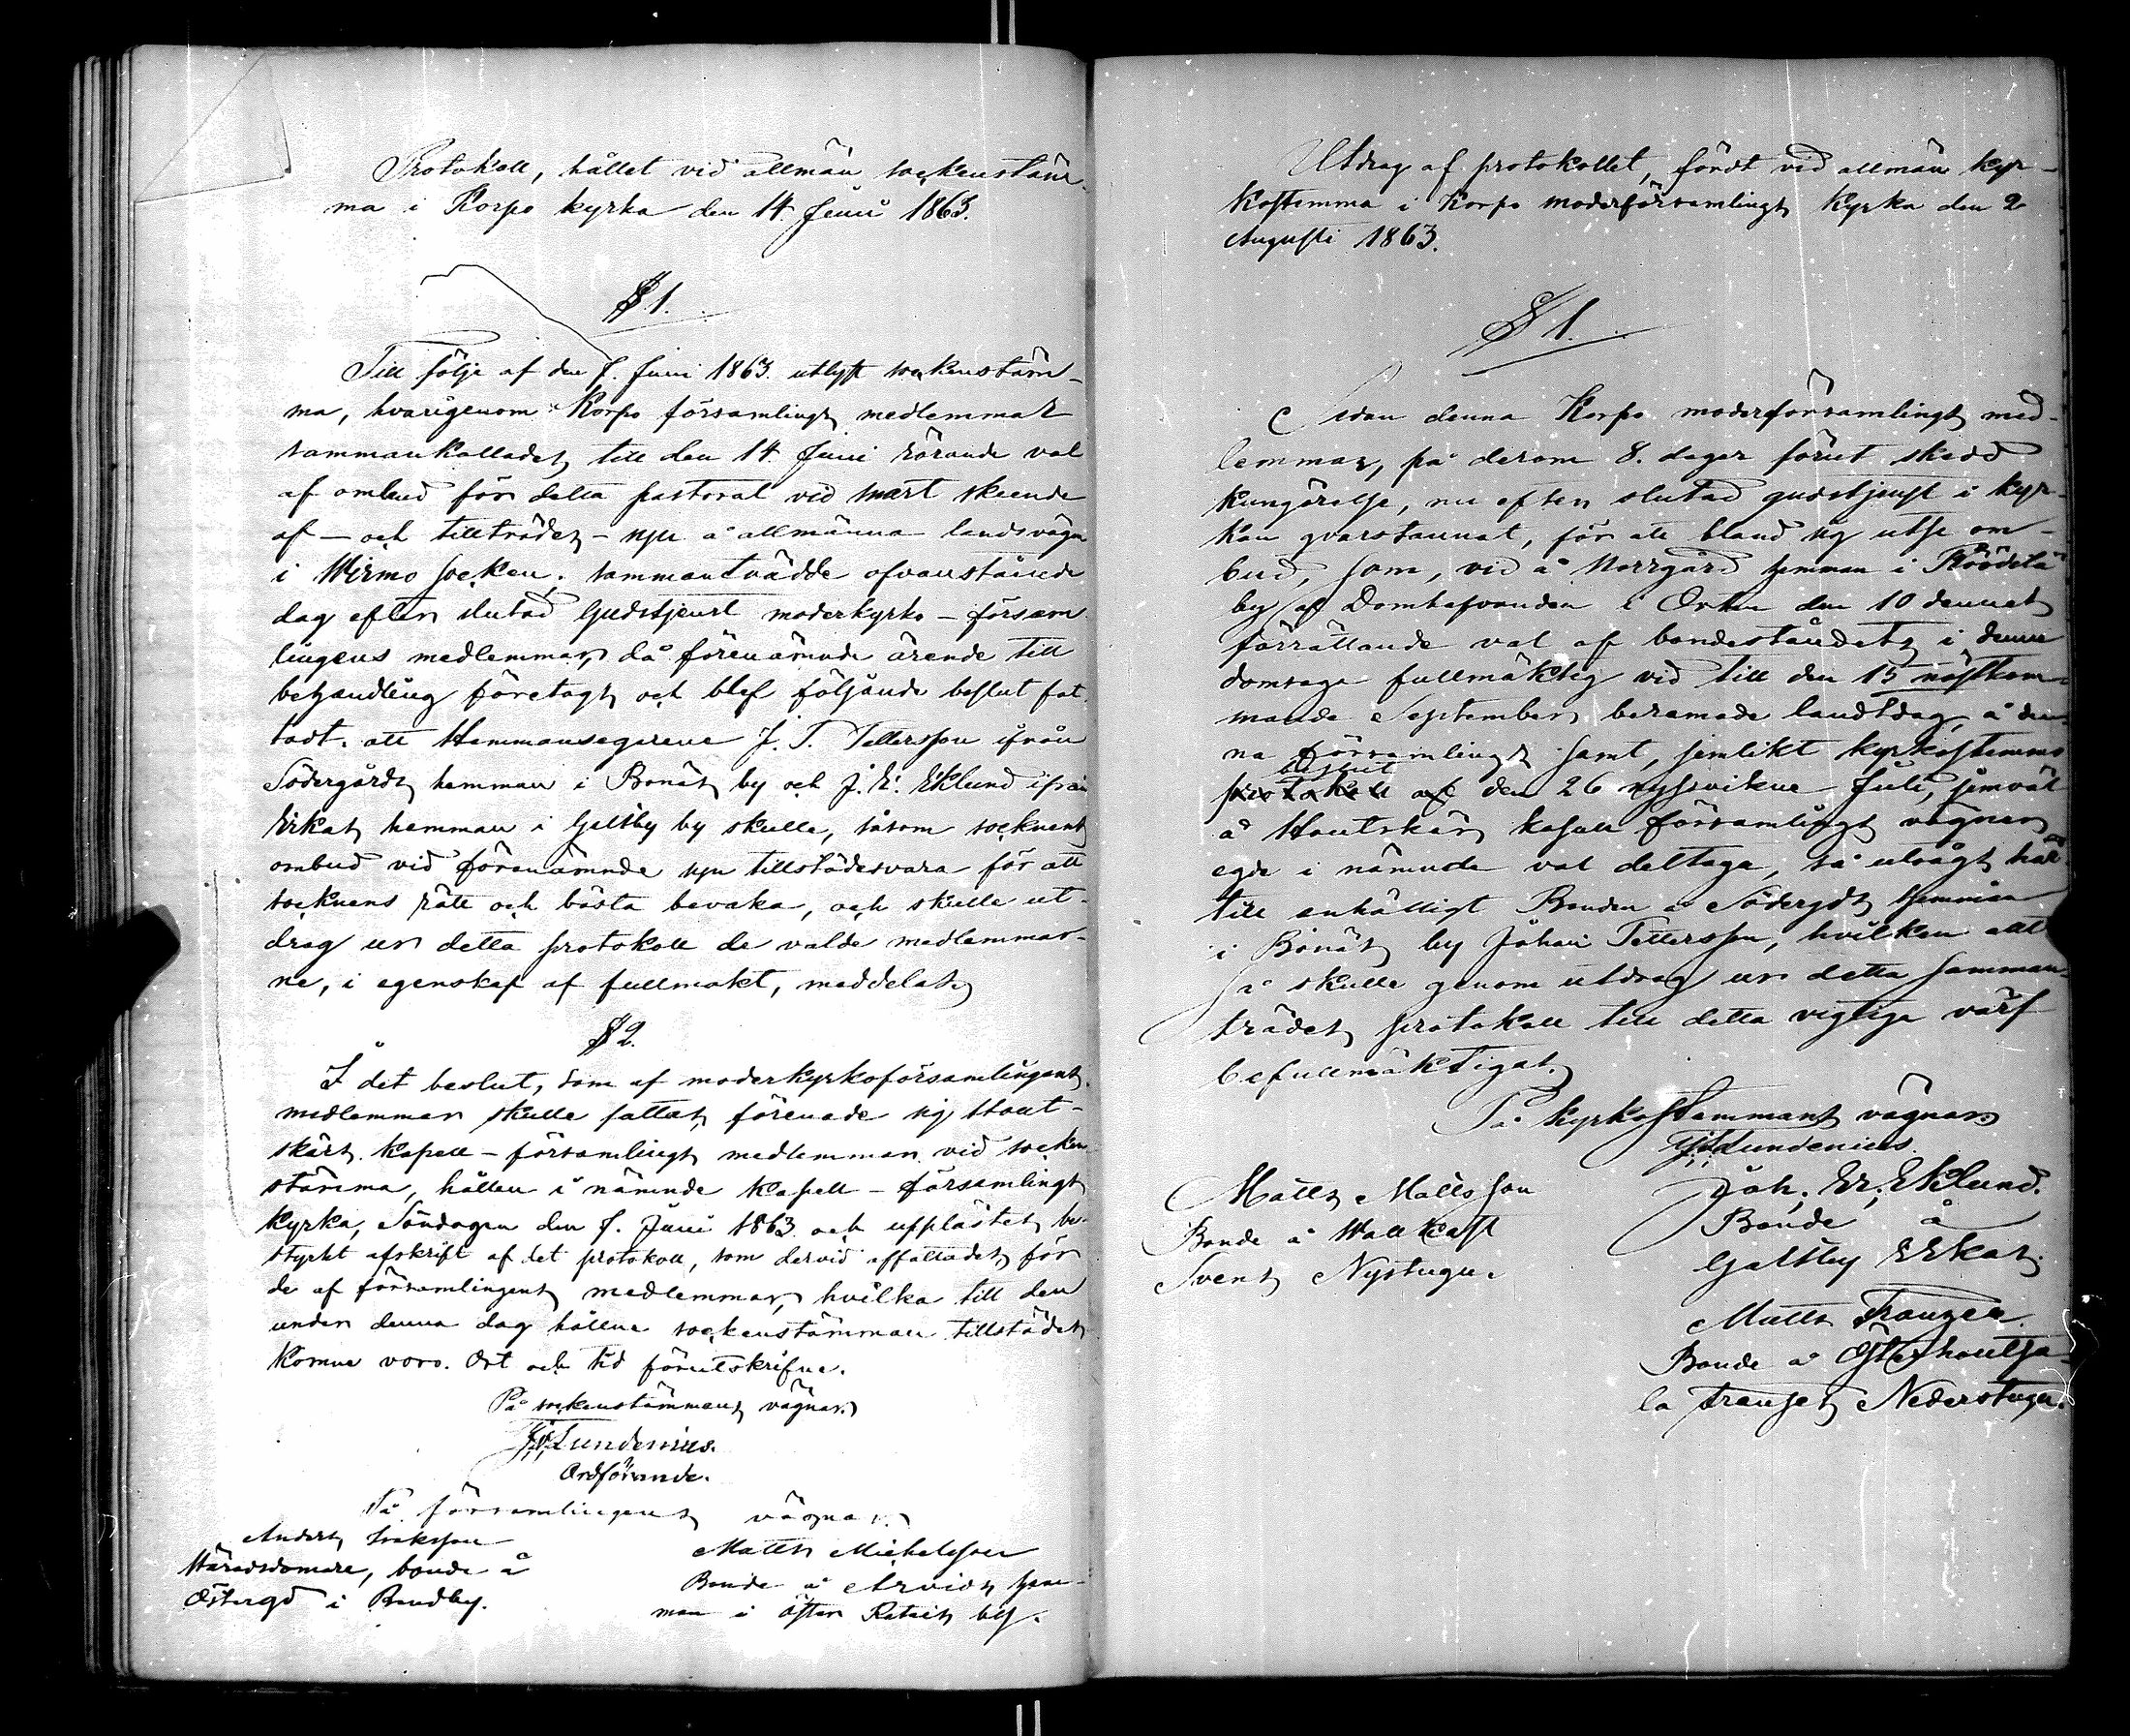 Protokoll, hållet vid allmän sockenstäm-
ma i Korpo kyrka den 14 Juni 1863.
§ 1.
Till följe af den 7. Juni 1863. utlyst sockenstäm-
ma, hvarigenom Korpo församlings medlemmar
sammankallades till den 14 Juni rörande val
af ombud för detta pastorat vid snart skeende
af- och tillträdes-syn å allmänna landsvägen
i Wirmo socken. sammanträdde ofvanstående
dag efter slutad Gudstjenst moderkyrko-försam
lingens medlemmar, då förenämnde ärende till
behandling företogs och blef följande beslut fat-
tadt. att Hemmansegarene J. P. Pettersson ifrån
Södergårds hemman i Bonäs by och J. E. Eklund ifrån
Erkas hemman i Galtby by skulle, såsom socknens
ombud vid förenämnde syn tillstädesvara för att
socknens rätt och bästa bevaka, och skulle ut-
drag ur detta protokoll de valde medlemmar-
ne, i egenskap af fullmakt, meddelas.
§ 2.
I det beslut, som af moderkyrkoförsamlingens
medlemmar skulle fattas, förenade sig Hout-
skärs kapell-församlings medlemmar vid socken
stämma, hållen i nämnde kapell-församlings
kyrka, Söndagen den 7. Juni 1863. och upplästes be-
styrkt afskrift af det protokoll, som dervid affattades, för
de af församlingens medlemmar, hvilka till den
under denna dag hållne sockenstämman tillstädes
komne voro. Ort och tid förutskrifne.
På sockenstämmans vägnar:
Lundenius.
Ordförande.
På församlingens vägnar:
Anders Isaksson
Häradsdomare, bonde å
Östergd i Rumby.
Matts Michelsson
Bonde å Arvids hem-
man i Öster Retais by.
Utdrag af protokollet, fördt vid allmän kyr-
kostemma i Korpo moderförsamlings kyrka den 2
Augusti 1863.
§ 1.
Sedan denna Korpo moderförsamlings med-
lemmar, på derom 8. dagar förut skedd
kungörelse, nu efter slutad gudstjenst i kyr-
kan qvarstannat, för att bland sig utse om-
bud, som, vid å Norrgård hemman i
by af Domhafvanden i Orten den 10 dennes
förrättande val af bondeståndets i denne
domsaga fullmäktig vid till den 15 nästkom-
mande September beramade landtdag, å den-
na församlings samt, jemlikt kyrkostemmo
beslut
protokoll af den 26 nyssvikne Juli, jemväl
å Houtskärs kapell församlings vägnar
ege i nämnde val deltaga, så utsågs här
till enhälligt Bonden å Södergds hemman
i Bonäs by Johan Pettersson, hvilken allt
så skulle genom utdrag ur detta samman-
trädes protokoll till detta vigtiga värf
befullmäktigas.
På kyrkostemmans vägnar:
Lundenius.
Matts Mattsson
Bonde å Wattkast
Svens Nystugu.
Joh. Er. Eklund.
Bonde å
Galtby Erkas.
Matts Franzen.
Bonde å Österhoutska-
la Franses Nederstugu.